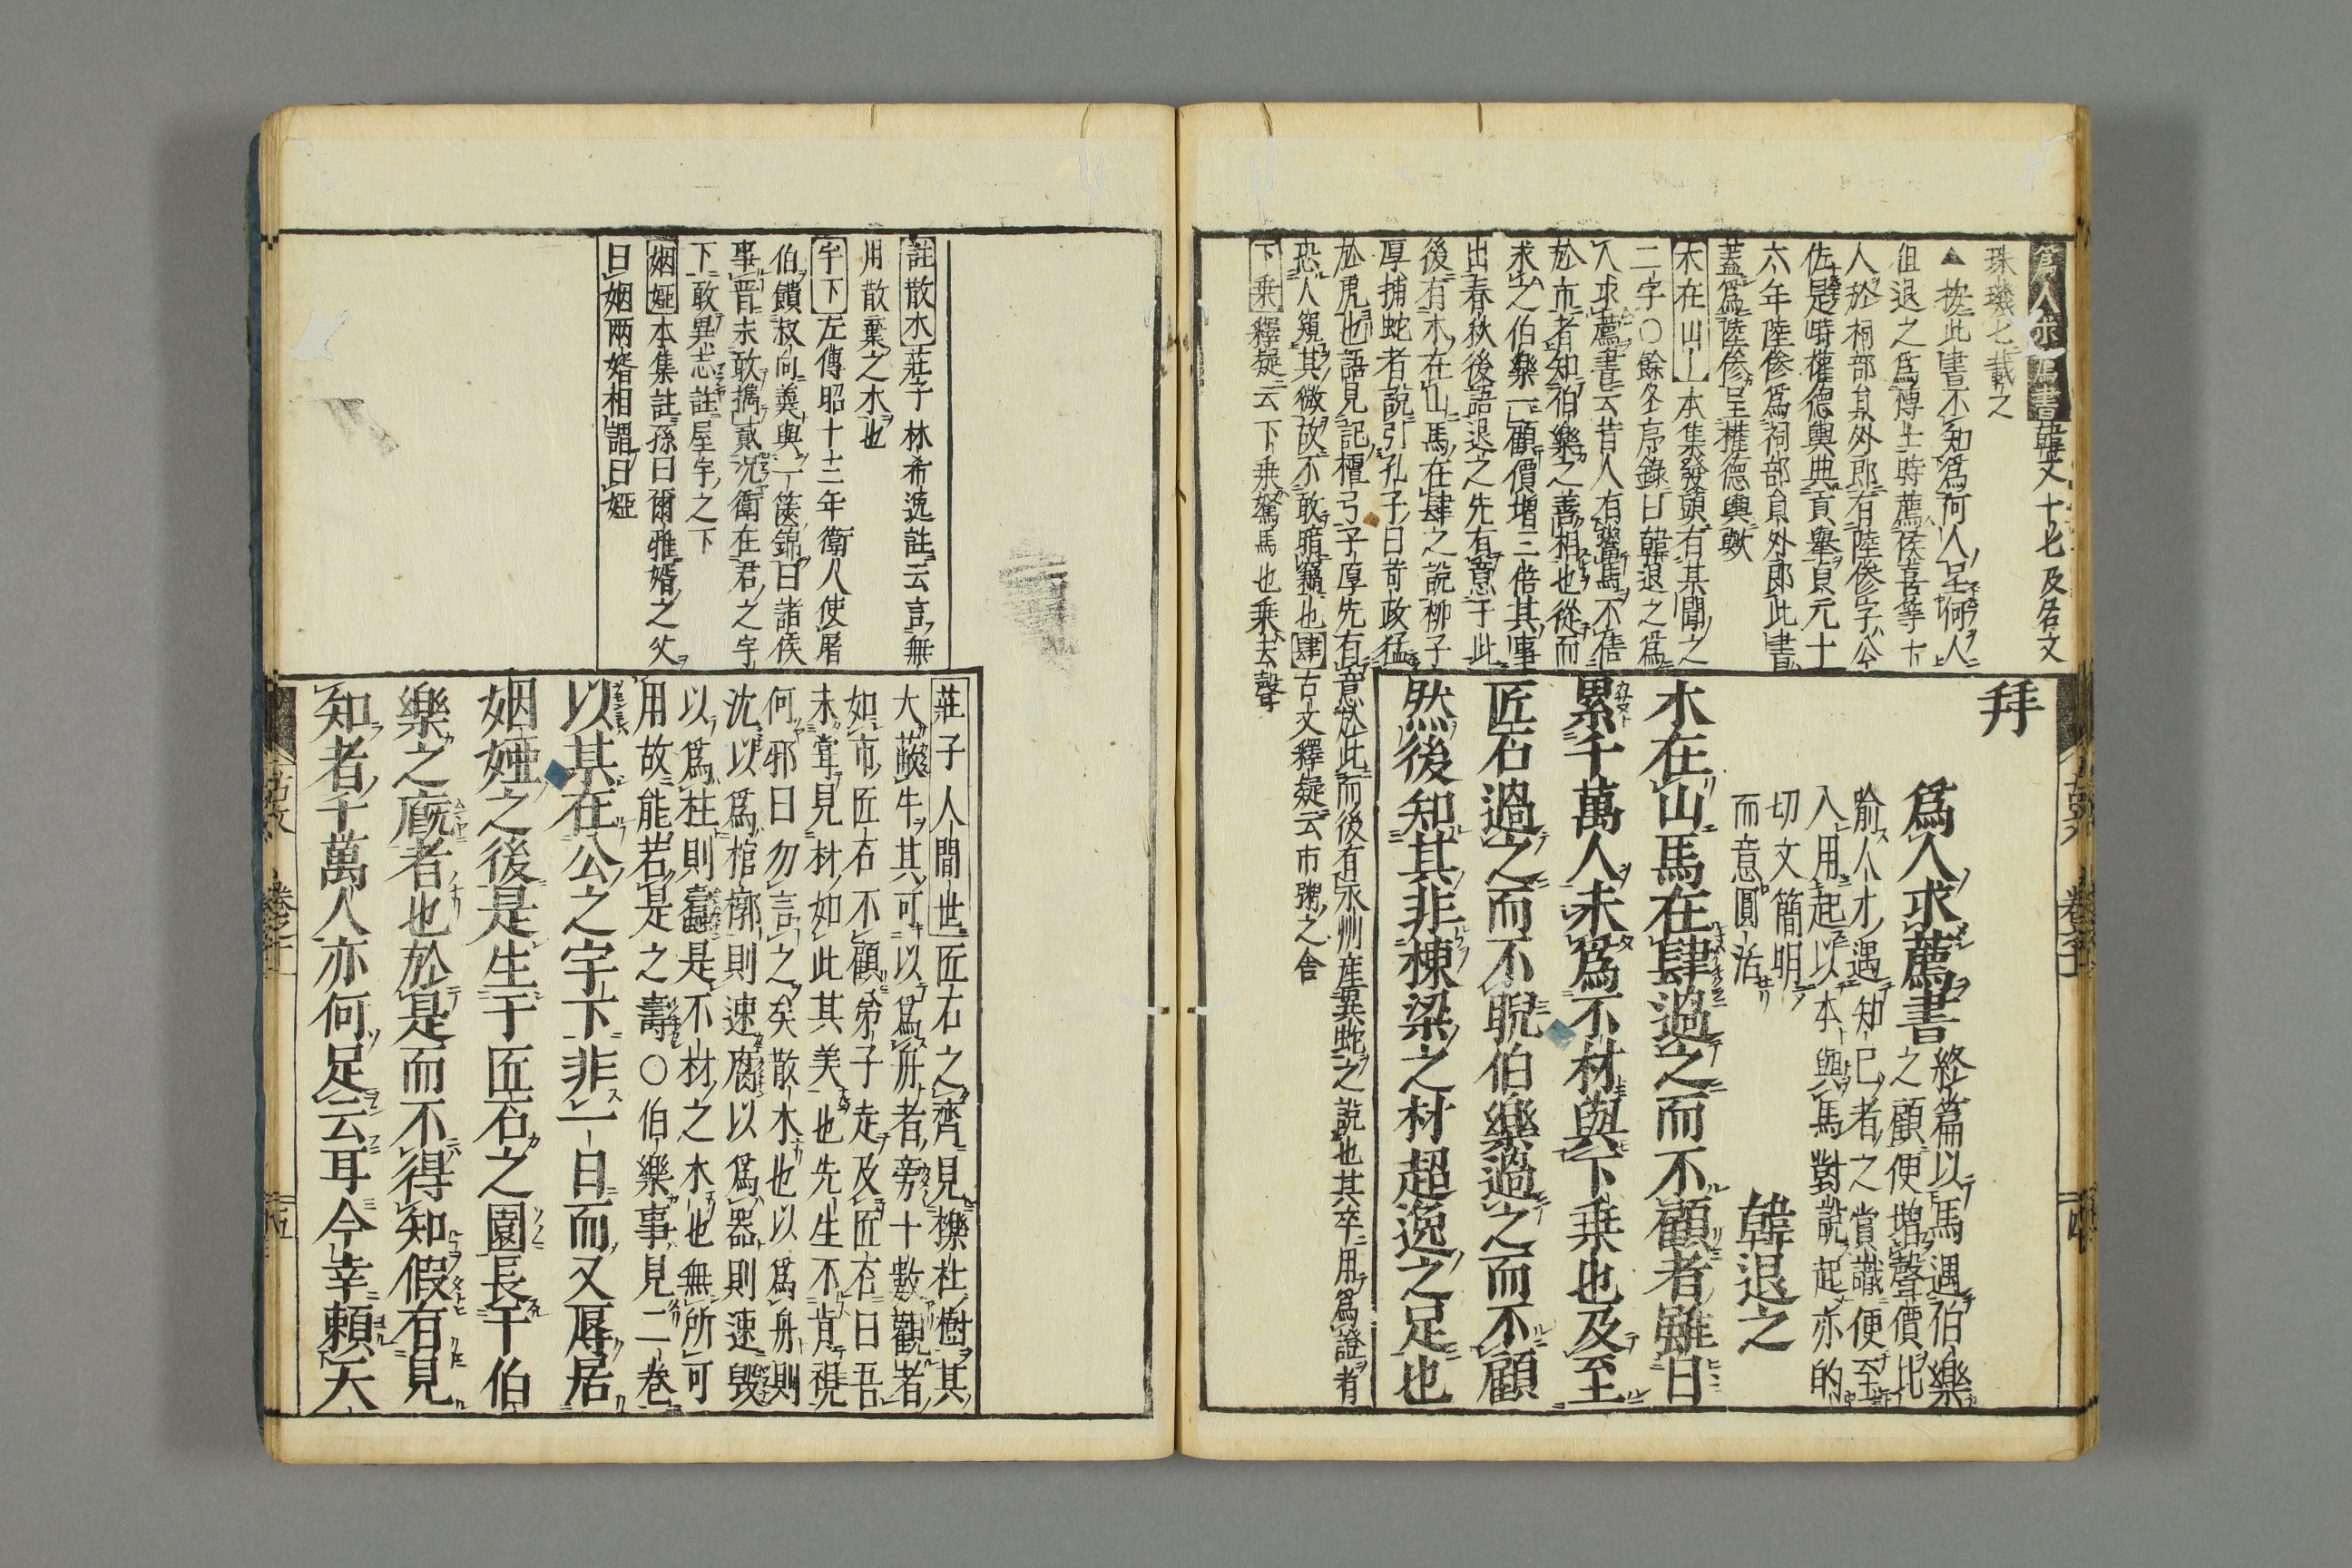 爲人求薦書韓文十七及名文
珠璣七載之
▲按此書不知爲何人呈何人
但退之爲博士時薦侯喜等十
人於祠部員外郎有陸傪字公
佐是時權德輿典貢擧貞元十
六年陸傪爲祠部員外郎此書
蓋爲陸傪呈權德輿歟
木在山｜本集發頭有某聞之
二字○餘冬序錄曰韓退之爲
人求薦書云昔人有鬻馬不售
於市者知伯樂之善相也從而
求之伯樂一顧價增三倍其事
出春秋後語退之先有意于此
後有木在山馬在肆之說柳子
厚捕蛇者說引孔子曰苛政猛
於虎也語見記檀弓子厚先有意於此而後有永州産異蛇之說也其卒用爲證者
恐人窺其微故不敢暗竊也肆古文釋疑云市粥之舍
下乗釋疑云下乗駑馬也乗去聲
拜
爲人求薦書終篇以馬遇伯樂
之顧便增聲價比
喻人才遇知已者之賞識便至
入用起以本與馬對說起亦的
切文簡明
而意圓活
韓退之
木在山馬在肆過之而不顧者雖日
累千萬人未爲不材與下乗也及至
匠石過之而不睨伯樂過之而不顧
然後知其非棟梁之材超逸之足也
註散木莊子林希逸註云言無
用散棄之木也
宇下左傳昭十三年衛人使屠
伯饋叔向羹與一篋錦曰諸侯
事晋未敢擕貳況衛在君之宇
下敢異志註屋宇之下
姻婭本集註孫曰爾雅婿之父
曰姻兩婿相謂曰婭
莊子人間世匠石之齊見櫟社樹其
大蔽牛其可以爲舟者旁十數觀者
如市匠石不顧弟子走及匠石曰吾
未嘗見材如此其美也先生不肯視
何邪曰勿言之矣散木也以爲舟則
沈以爲棺槨則速腐以爲器則速毀
以爲柱則蠧是不材之木也無所可
用故能若是之壽○伯樂事見二卷
以某在公之宇下非一日而又辱居
姻婭之後是生于匠石之園長于伯
樂之廐者也於是而不得知假有見
知者千萬人亦何足云耳今幸頼天